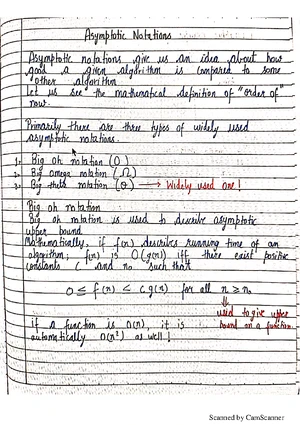 Asymptotic Notations
Asymptotic notations give us an idea about how
good a given algorithm is compared to some
other algorithm.
Let us see the mathematical definition of "order of"
now.
Primarily there are three types of widely used
asymptotic notations.
1. Big oh notation (O)
2. Big omega notation (Ω)
3. Big theta notation (θ) → Widely used one!
Big oh notation
Big oh notation is used to describe asymptotic
upper bound.
Mathematically, if f(n) describes running time of an
algorithm; f(n) is O(g(n)) iff there exist positive
constants C and no such that
0 ≤ f(n) ≤ cg(n) for all n ≥ no
used to give upper
bound on a function
if a function is O(n), it is
automatically O(n²) as well!
Scanned by CamScanner